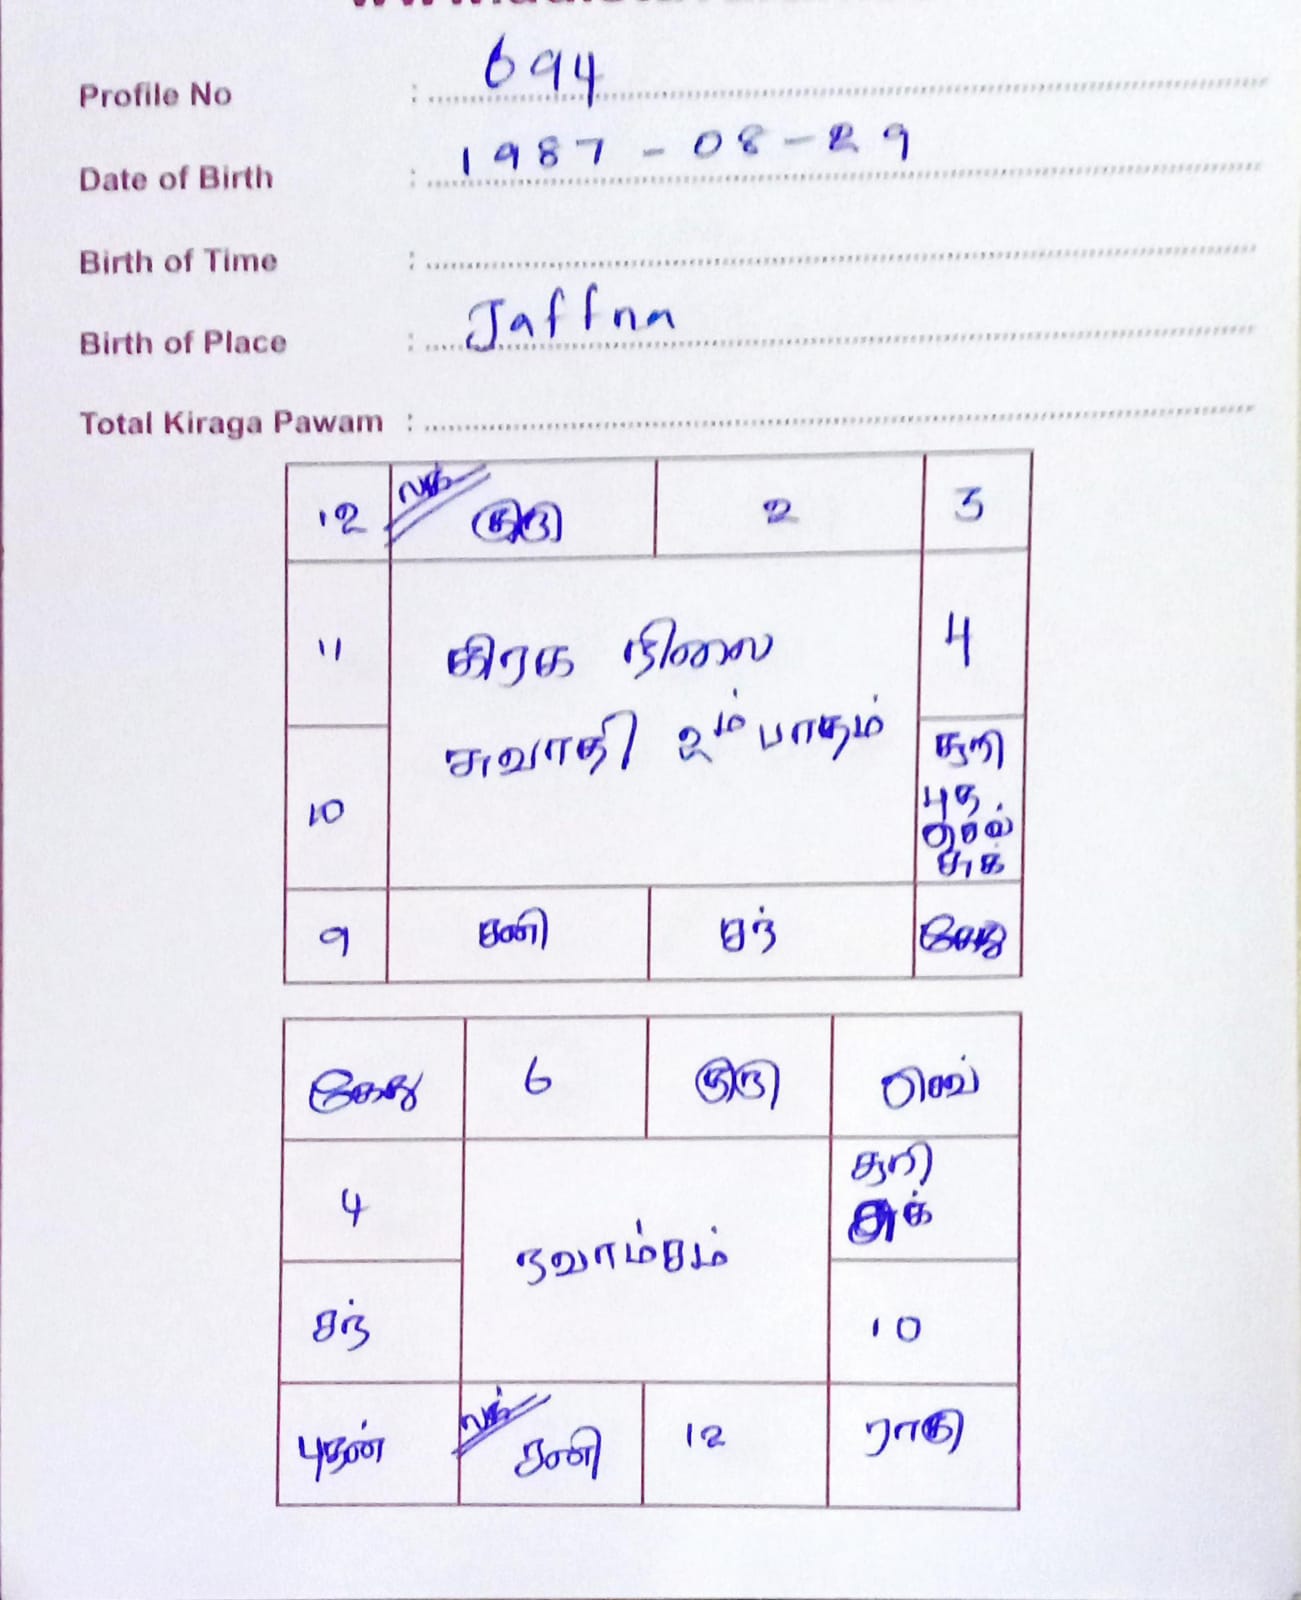 Profile No : 694
Date of Birth : 1987-08-29
Birth of Time :
Birth of Place : Jaffna
Total Kiraga Pawam :
12 லக் குரு 2 3
கிரக நிலை
சுவாதி 2ம் பாதம்
11 4
10 சூரி
புத
செவ்
சுக்
9 சனி சந் கேது
கேது 6 குரு செவ்
4 சூரி
சுக்
நவாம்சம்
சந் 10
புதன் லக் சனி 12 ராகு